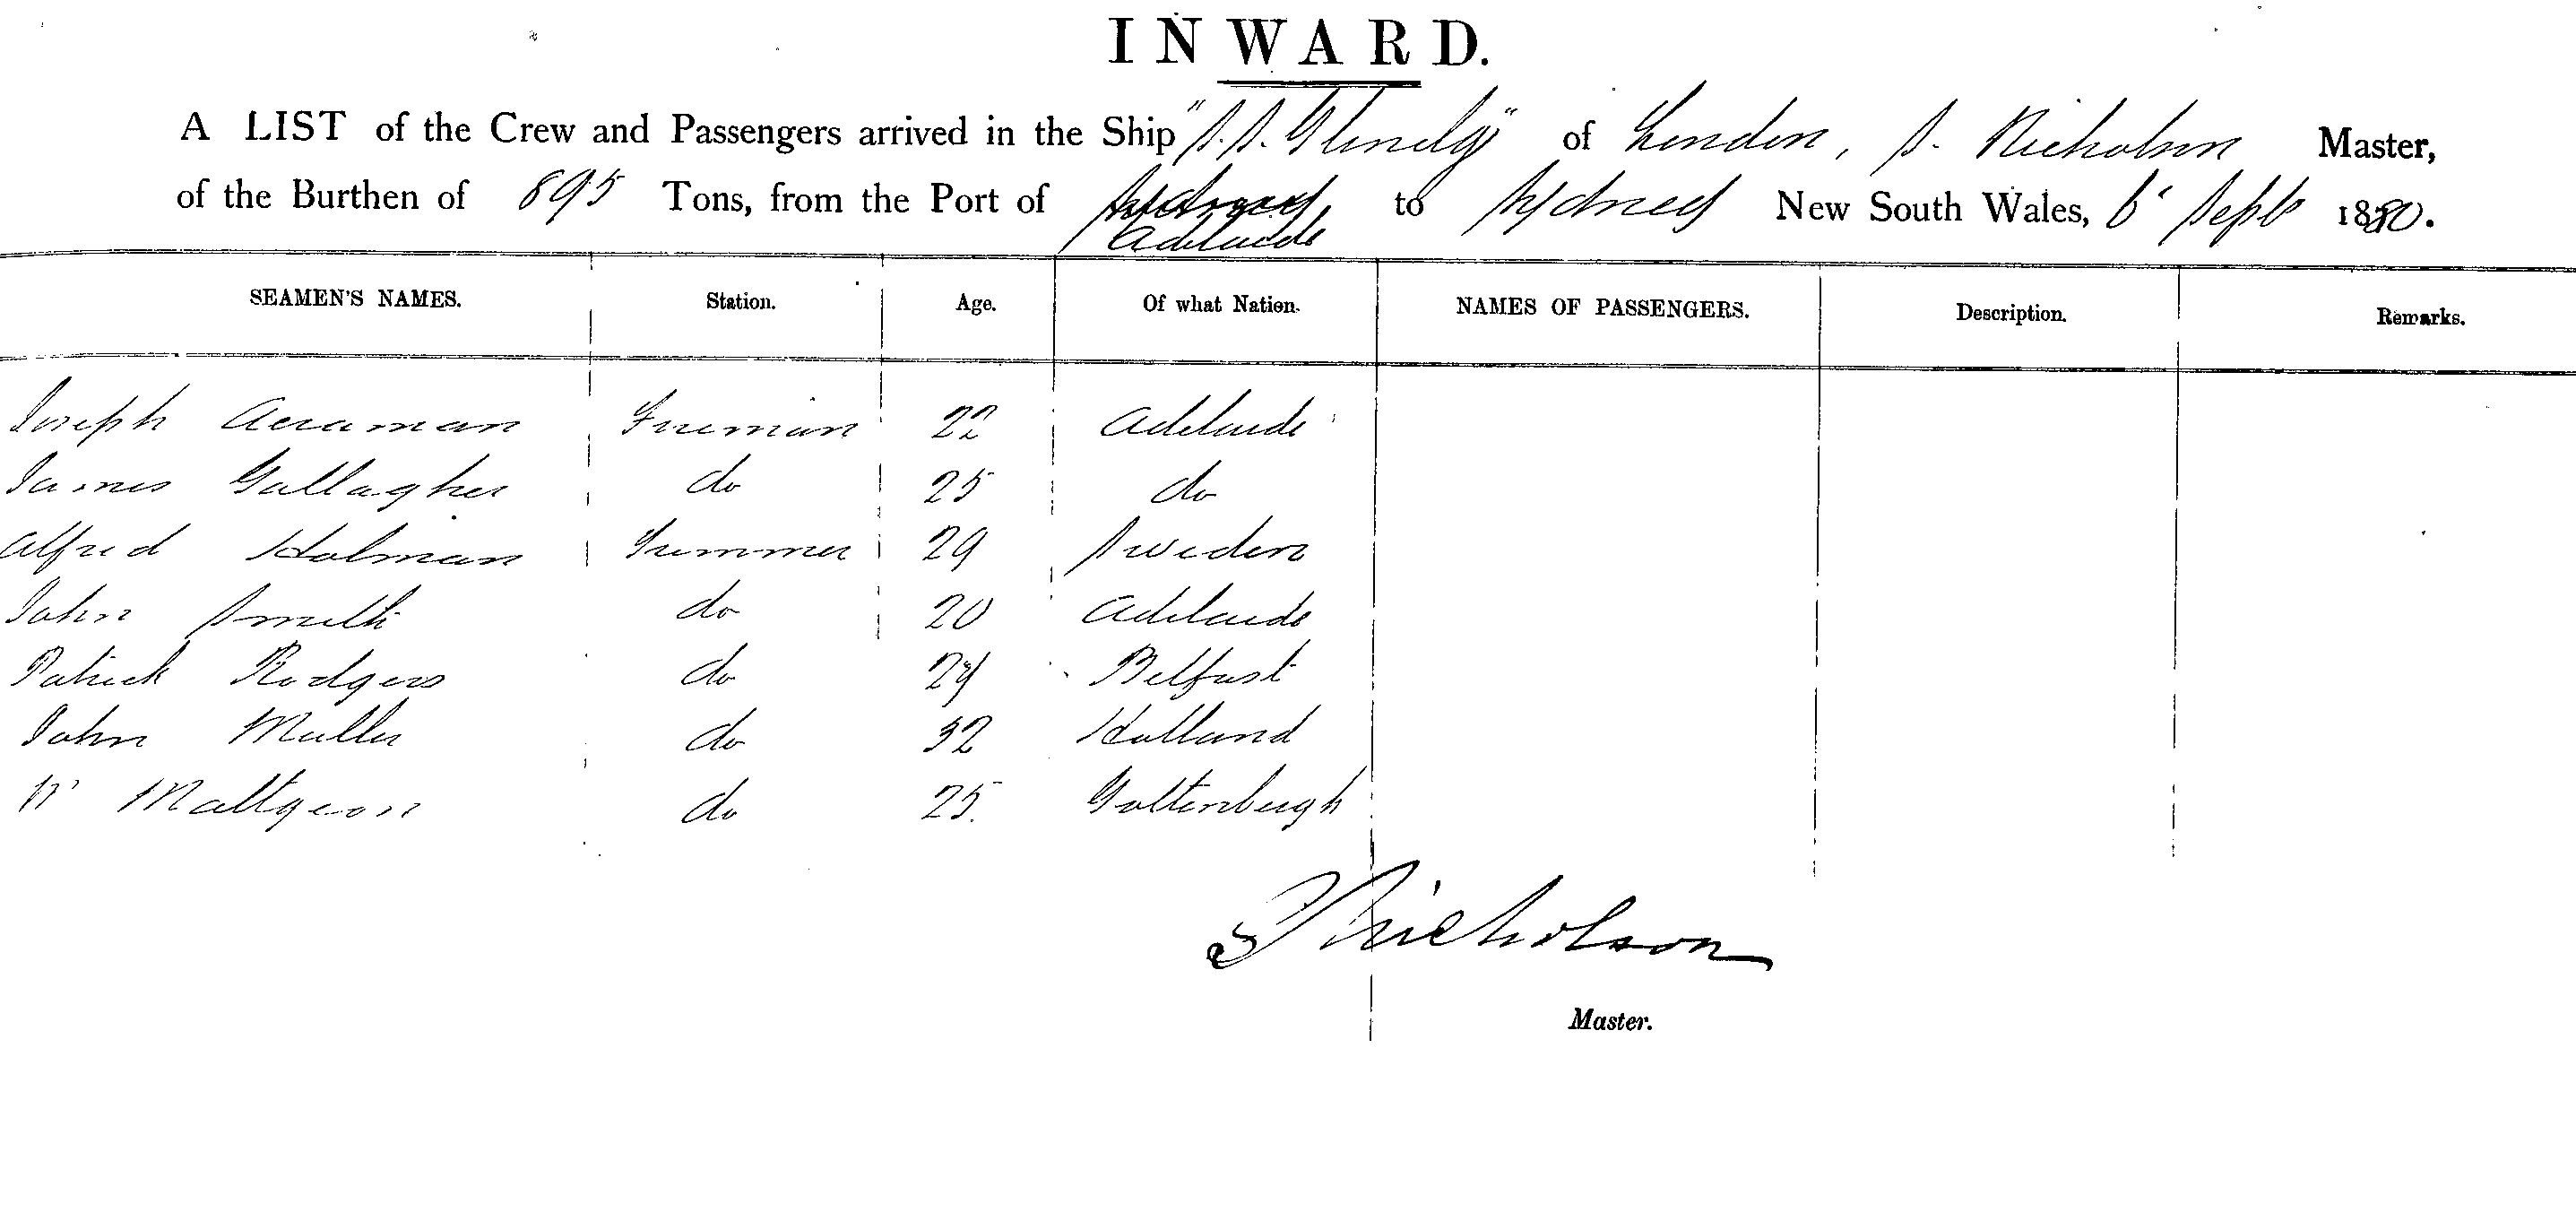 INWARD.
A LIST of the Crew and Passengers arrived in the Ship "S.S. Glenelg" of London, S. Nicholson Master,
of the Burthen of 895 Tons, from the Port of Sydney to Sydney New South Wales, 6 Sept 1880.
Adelaide
SEAMEN'S NAMES. Station. Age. Of what Nation. NAMES OF PASSENGERS. Description. Remarks.
Joseph Acraman Fireman 22 Adelaide
James Gallagher do 25 do
Alfred Holman Trimmer 29 Sweden
John Smith do 20 Adelaide
Patrick Rodgers do 24 Belfast
John Muller do 32 Holland
Mattgeon do 25 Gottenburgh
S Nicholson
Master.